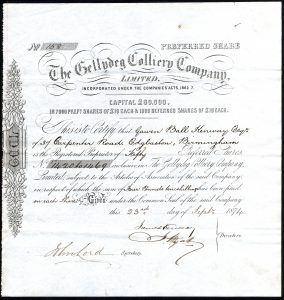 No 158 PREFERRED SHARE
The Gellydeg Colliery Company,
LIMITED.
INCORPORATED UNDER THE COMPANIES ACTS, 1862-7.
CAPITAL £80,000,
IN 7000 PREFT SHARES OF £10 EACH & 1000 DEFERRED SHARES OF £10 EACH.
This is to Certify that Gawen Ball Kenway Esqre
of 37 Carpenter Road, Edgbaston, Birmingham
is the Registered Proprietor of Fifty Preferred Shares
inclusive in The Gellydeg Colliery Company,
Limited, subject to the Articles of Association of the said Company;
in respect of which the sum of Four Pounds ten shillings has been paid
on each Share. Given under the Common Seal of the said Company
this 23rd day of Sept 1874
Directors
John Lord Secretary